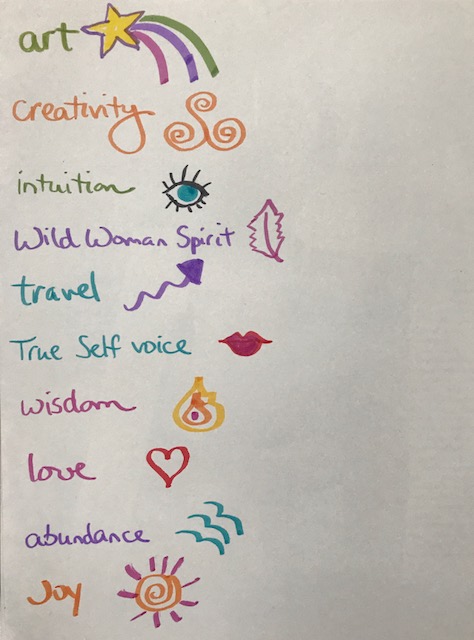 art
Creativity
intuition
Wild Woman Spirit
travel
True Self voice
wisdom
love
abundance
Joy